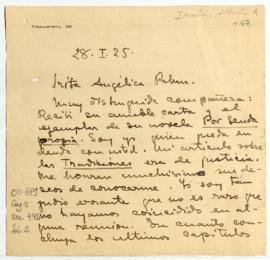 28. I. 25.
Srita Angélica Palma.
Muy distinguida compañera:
Recibí su amable carta y el
ejemplar de su novela Por senda
propia. Soy yo quien queda en
deuda con Ud. Mi artículo sobre
las Tradiciones era de justicia.
Me honran muchísimo sus de-
seos de conocerme. Yo soy tan
judío errante que no es raro que
no hayamos coincidido en al-
guna reunión. En cuanto con-
cluya los últimos capítulos